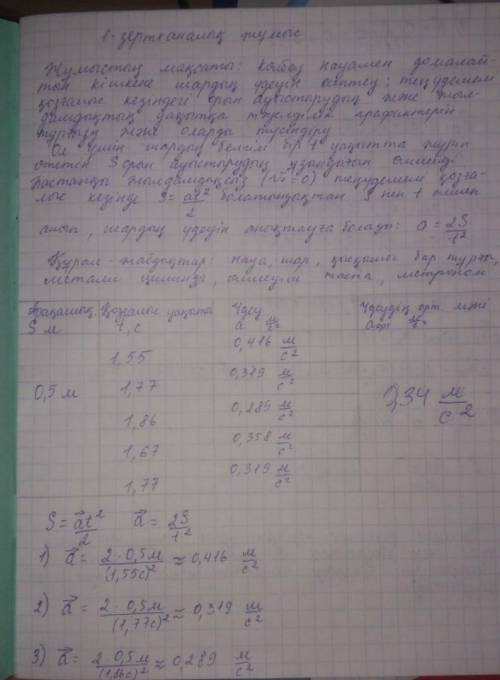 1-зертханалық жұмыс
Жұмыстың мақсаты: көлбеу науамен домалай-
тын кішкене шардың үдеуін есептеу; теңүдемелі
қозғалыс кезіндегі орын ауыстырудың және жыл-
дамдықтың уақытқа тәуелділік графиктерін
тұрғызу және оларды түсіндіру
Ол үшін шардың белгілі бір t уақытта жүріп
өтетін S орын ауыстырудың ұзындығын өлшейді
Бастапқы жылдамдықсыз (v₀=0) теңүдемелі қозға-
лыс кезінде S = at²/2 болатындықтан S пен t мәнін
анып, шардың үдеуін анықтауға болады: a = 2S/t²
Құрал-жабдықтар: науа, шар, қысқышы бар тұрғы,
металл цилиндр, өлшеуіш таспа, метроном
Арақашық. Қозғалыс уақыты Үдеу Үдеудің орт. мәні
S м t, с a м/с² aорт м/с²
1,55 0,416 м/с²
0,5 м 1,77 0,319 м/с² 0,34 м/с²
1,86 0,289 м/с²
1,67 0,358 м/с²
1,77 0,319 м/с²
S = at²/2 a = 2S/t²
1) a = 2·0,5м/(1,55с)² ≈ 0,416 м/с²
2) a = 2·0,5м/(1,77с)² ≈ 0,319 м/с²
3) a = 2·0,5м/(1,86с)² ≈ 0,289 м/с²